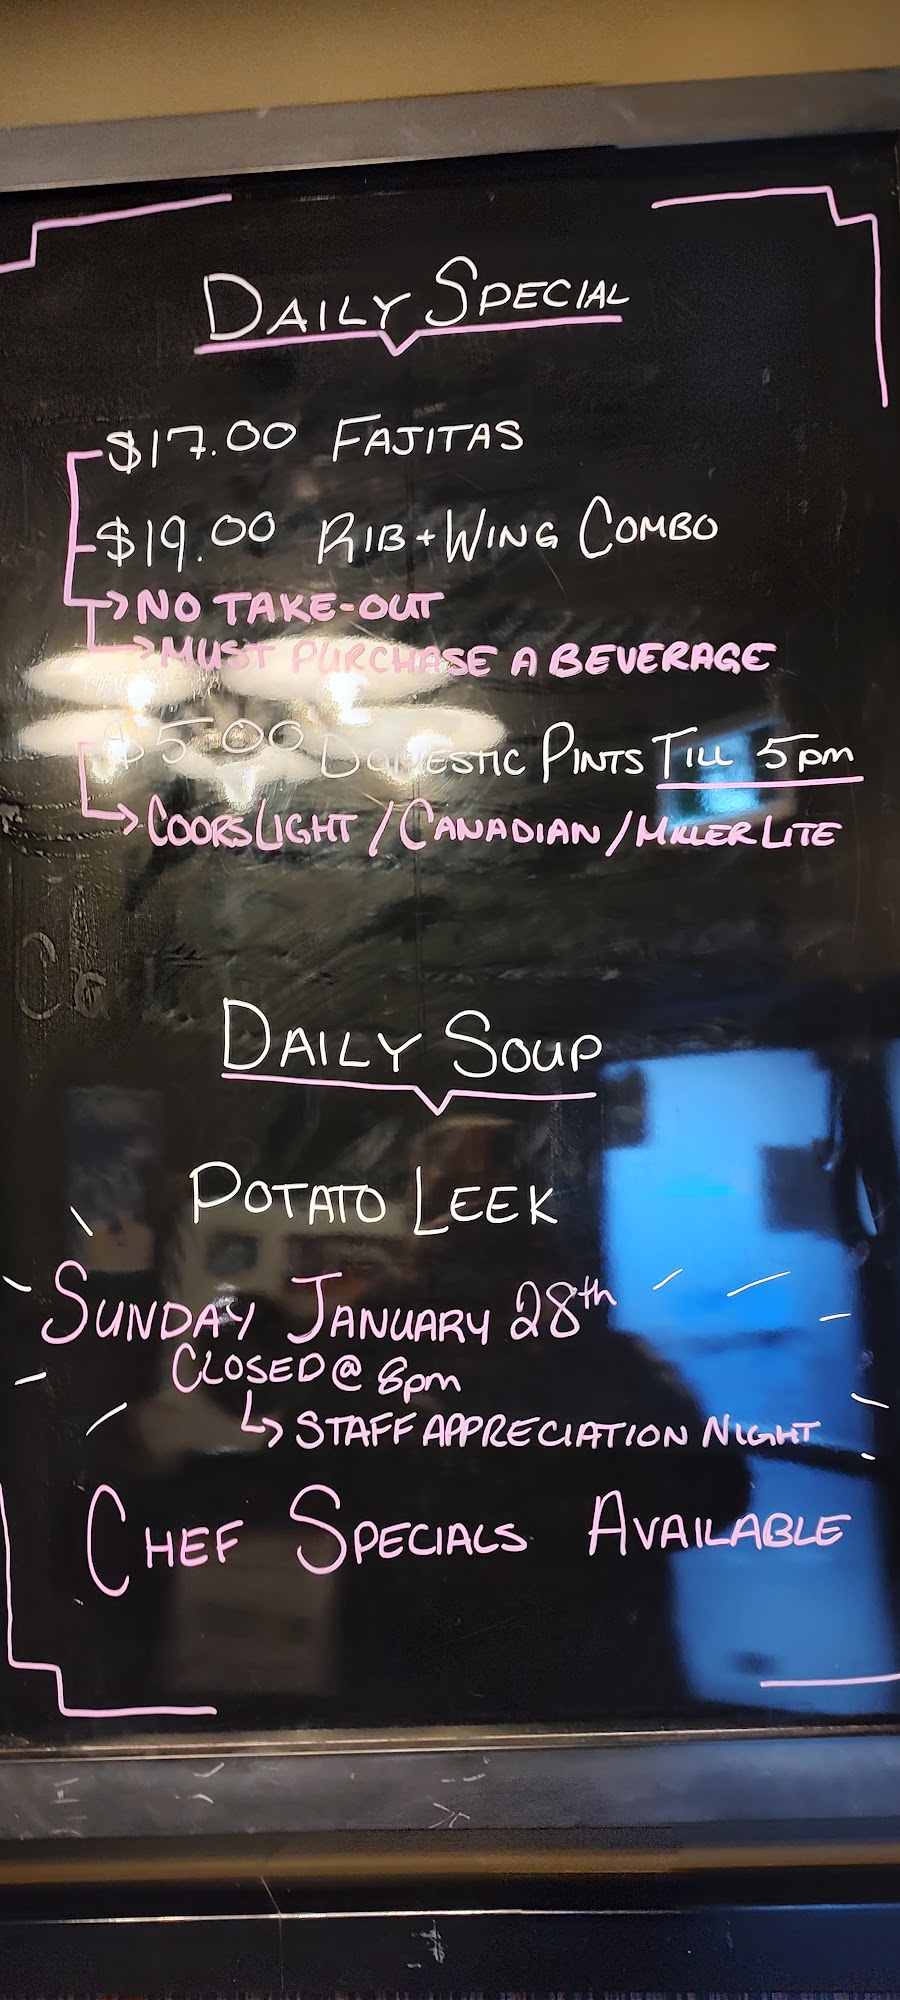 DAILY SPECIAL
$17.00 FAJITAS
$19.00 RIB + WING COMBO
NO TAKE-OUT
MUST PURCHASE A BEVERAGE
$5.00 DOMESTIC PINTS TILL 5pm
COORS LIGHT / CANADIAN / MILLER LITE
DAILY SOUP
POTATO LEEK
SUNDAY JANUARY 28th
CLOSED @ 8pm
STAFF APPRECIATION NIGHT
CHEF SPECIALS AVAILABLE